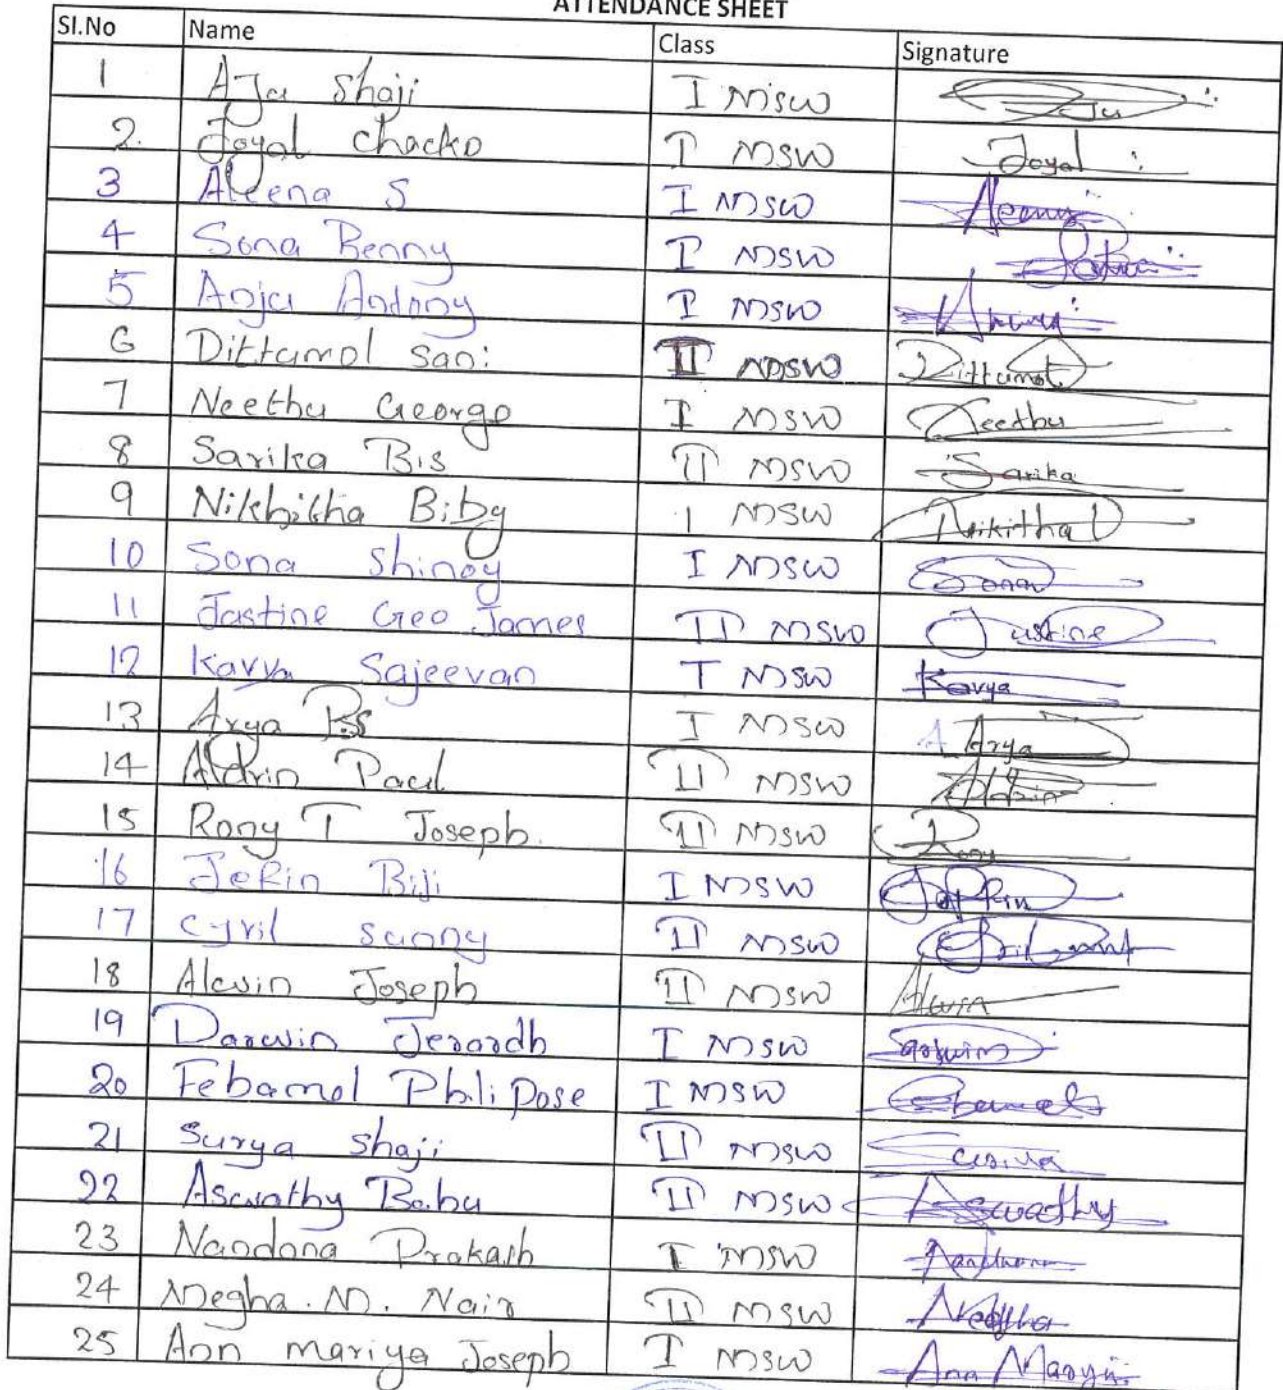 ATTENDANCE SHEET
Sl.No Name Class Signature
1 Aju Shaji I MSW Aju
2. Joyal Chacko I MSW Joyal
3 Aleena S I MSW
4 Sona Benny I MSW
5 Anju Antony I MSW
6 Dittamol Sani II MSW Dittamol
7 Neethu George I MSW Neethu
8 Sarika Bis II MSW Sarika
9 Nikhitha Biby I MSW Nikitha
10 Sona Shinoy I MSW Sona
11 Jastine Geo James II MSW Justine
12 Kavya Sajeevan I MSW Kavya
13 Arya P.S I MSW A Arya
14 Aldrin Paul II MSW Aldrin
15 Rony T Joseph. II MSW Rony
16 Jefin Biji I MSW
17 Cyril Sunny II MSW
18 Alwin Joseph II MSW Alwin
19 Darwin Jerardh I MSW Darwin
20 Febamol Philipose I MSW
21 Surya Shaji II MSW
22 Aswathy Babu II MSW Aswathy
23 Nandana Prakash I MSW Nandana
24 Megha. M. Nair II MSW
25 Ann Mariya Joseph I MSW Ann Mariya